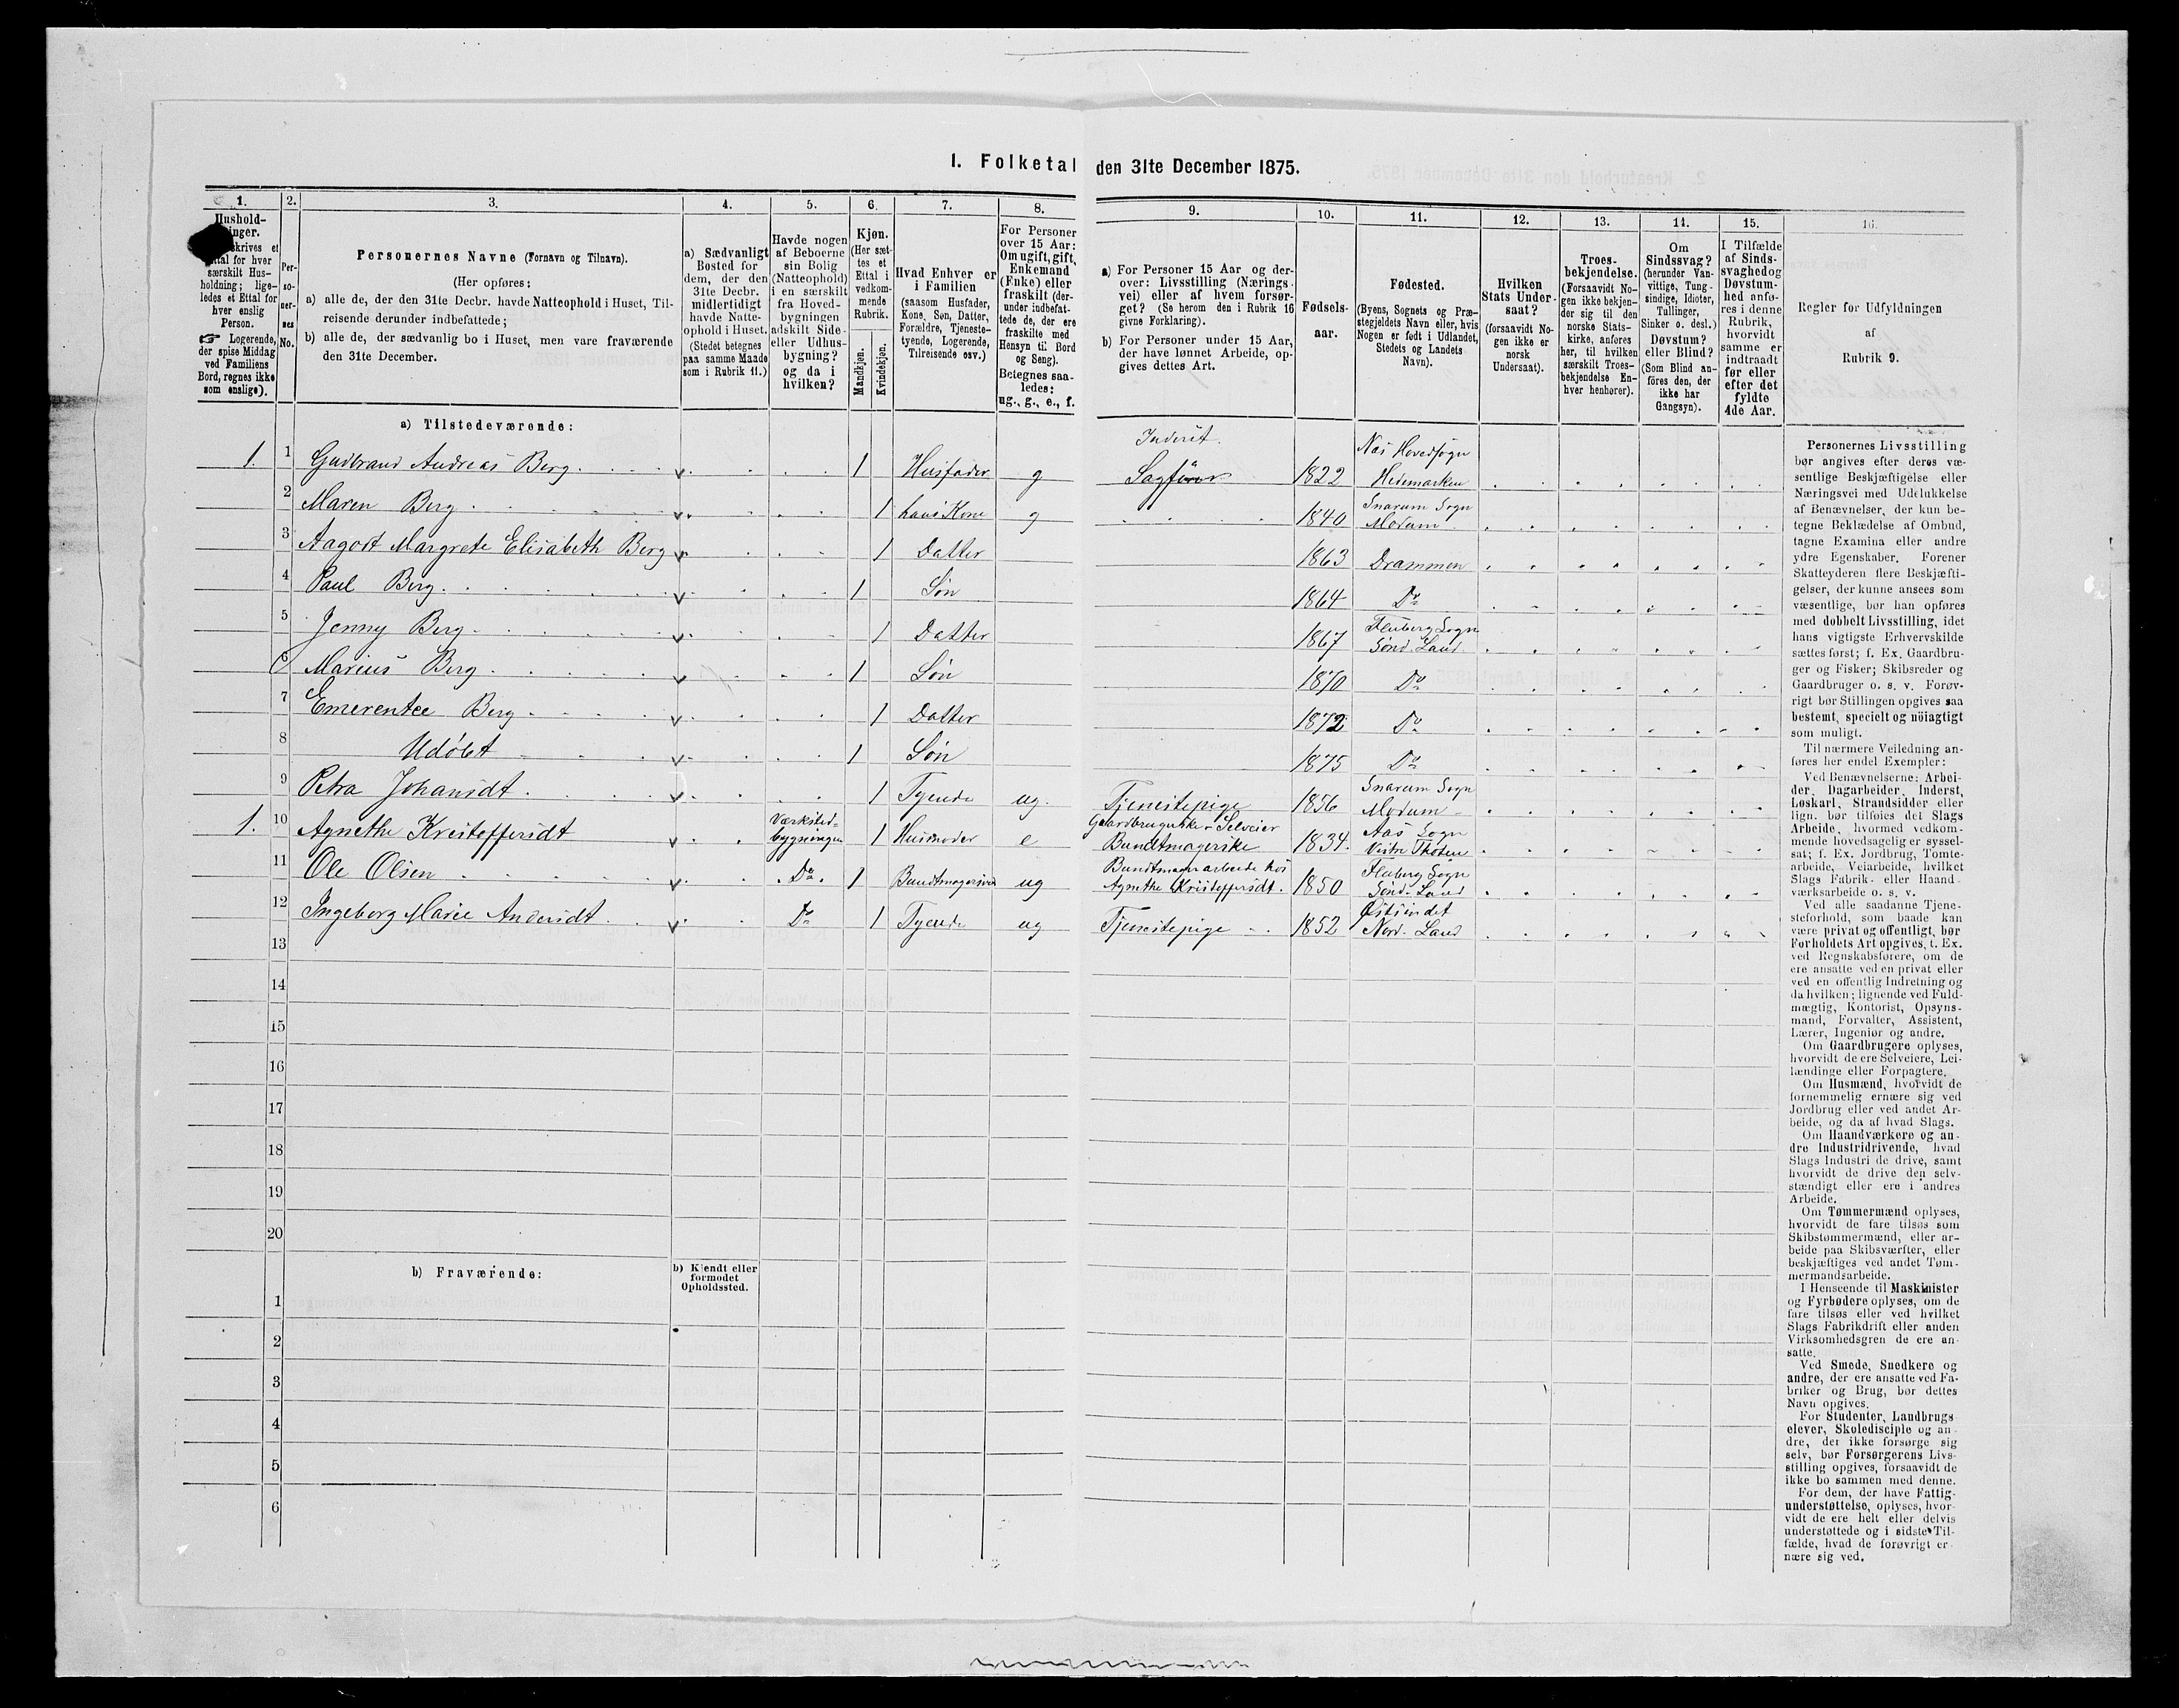 1. Folketal den 31te December 1875.
1. 2. 3. 4. 5. 6. 7. 8. 9. 10. 11. 12. 13. 14. 15. 16.
Hushold-
Logerende,
der spise Middag
ved Familiens
Bord, regnes ikke
som enslige).
Per-
so-
ner-
nes
No.
Personernes Navne (Fornavn og Tilnavn).
(Her opføres:
a) alle de, der den 31te Decbr. havde Natteophold i Huset, Til-
reisende derunder indbefattede;
b) alle de, der sædvanlig bo i Huset, men vare fraværende
den 31te December.
a) Sædvanligt
Bosted for
dem, der den
31te Decbr.
midlertidigt
havde Natte-
ophold i Huset.
(Stedet betegnes
paa samme Maade
som i Rubrik 11.)
Havde nogen
af Beboerne
sin Bolig
(Natteophold)
i en særskilt
fra Hoved-
bygningen
adskilt Side-
eller Udhus-
bygning?
og da i
hvilken?
Kjøn.
(Her sæt-
tes et
Ettal i
vedkom-
mende
Rubrik.
Mandkjøn.
Kvindekjøn.
Hvad Enhver er
i Familien
(saasom Husfader,
Kone, Søn, Datter,
Forældre, Tjeneste-
tyende, Logerende,
Tilreisende osv.)
For Personer
over 15 Aar:
Om ugift, gift,
Enkemand
(Enke) eller
fraskilt (der-
under indbefat-
tede de, der ere
fraskilte med
Hensyn til Bord
og Seng).
Betegnes saa-
ledes:
ug., g., e., f.
a) For Personer 15 Aar og der-
over: Livsstilling (Nærings-
vei) eller af hvem forsør-
get? (Se herom den i Rubrik 16
givne Forklaring).
b) For Personer under 15 Aar,
der have lønnet Arbeide, op-
gives dettes Art.
Fødsels-
aar.
Fødested.
(Byens, Sognets og Præ-
stegjeldets Navn eller, hvis
Nogen er født i Udlandet,
Stedets og Landets
Navn).
Hvilken
Stats Under-
saat?
(forsaavidt No-
gen ikke er
norsk
Undersaat).
Troes-
bekjendelse.
(Forsaavidt No-
gen ikke bekjen-
der sig til den
norske Stats-
kirke, anføres
her, til hvilken
særskilt Troes-
bekjendelse En-
hver henhører).
Om
Sindssvag?
(herunder Van-
vittige, Tung-
sindige, Idioter,
Tullinger,
Sinker o. desl.)
Døvstum?
eller Blind?
(Som Blind an-
føres den, der
ikke har
Gangsyn).
I Tilfælde
af Sinds-
svaghed og
Døvstum-
hed anfø-
res i denne
Rubrik,
hvorvidt
samme er
indtraadt
før eller
efter det
fyldte
4de Aar.
Regler for Udfyldningen
af
Rubrik 9.
a) Tilstedeværende:
1. 1 Gudbrand Andreas Berg 1 Husfader g Inderst. Sagfører 1822 Næs Hovedsogn Hedemarken
2 Maren Berg 1 hans Kone g 1840 Snarum Sogn Modum
3 Aagodt Margrete Elisabeth Berg 1 Datter 1863 Drammen
4 Paul Berg 1 Søn 1864 Do
5 Jenny Berg 1 Datter 1867 Fluberg Sogn Sønd. Land
6 Marius Berg 1 Søn 1870 Do
7 Emerentee Berg 1 Datter 1872 Do
8 Udøbt 1 Søn 1875 Do
9 Petra Johansdt 1 Tyende ug. Tjenestepige 1856 Snarum Sogn Modum
1. 10 Agnethe Kristoffersdt Værksted- bygningen 1 Husmoder e Gaardbrugerske - Selveier Bundtmagerske 1834. Aas Sogn Vestre Thoten
11 Ole Olsen Do. 1 Bundtmagersvend ug Bundtmagerarbeide hos Agnethe Kristoffersdt. 1850 Fluberg Sogn Sønd. Land
12 Ingeborg Marie Andersdt Do 1 Tyende ug Tjenestepige 1852 Østsindet Nord. Land
13
14
15
16
17
18
19
20
b) Fraværende:
b) Kjendt eller
formodet
Opholdssted.
1
2
3
4
5
6
Personernes Livsstilling
bør angives efter deres væ-
sentlige Beskjæftigelse eller
Næringsvei med Udelukkelse
af Benævnelser, der kun be-
tegne Beklædelse af Ombud,
tagne Examina eller andre
ydre Egenskaber. Forener
Skatteyderen flere Beskjæfti-
gelser, der kunne ansees som
væsentlige, bør han opføres
med dobbelt Livsstilling, idet
hans vigtigste Erhvervskilde
sættes først; f. Ex. Gaardbru-
ger og Fisker; Skibsreder og
Gaardbruger o. s. v. Forøv-
rigt bør Stillingen opgives saa
bestemt, specielt og nöiagtigt
som muligt.
Til nærmere Veiledning an-
føres her endel Exempler:
Ved Benævnelserne: Arbei-
der, Dagarbeider, Inderst,
Løskarl, Strandsidder eller
lign. bør tilføies det Slags
Arbeide, hvormed vedkom-
mende hovedsagelig er syssel-
sat; f. Ex. Jordbrug, Tomte-
arbeide, Veiarbeide, hvilket
Slags Fabrik- eller Haand-
værksarbeide o. s. v.
Ved alle saadanne Tjene-
steforhold, som baade kan
være privat og offentligt, bør
Forholdets Art opgives, t. Ex.
ved Regnskabsførere, om de
ere ansatte ved en privat eller
ved en offentlig Indretning og
da hvilken; lignende ved Fuld-
mægtig, Kontorist, Opsyns-
mand, Forvalter, Assistent,
Lærer, Ingeniør og andre.
Om Gaardbrugere oplyses,
hvorvidt de ere Selveiere, Lei-
lændinge eller Forpagtere.
Om Husmænd, hvorvidt de
fornemmelig ernære sig ved
Jordbrug eller ved andet Ar-
beide, og da af hvad Slags.
Om Haandværkere og an-
dre Industridrivende, hvad
Slags Industri de drive, samt
hvorvidt de drive den selv-
stændigt eller ere i andres
Arbeide.
Om Tømmermænd oplyses,
hvorvidt de fare tilsøs som
Skibstømmermænd, eller ar-
beide paa Skibsværfter, eller
beskjæftiges ved andet Tøm-
mermandsarbeide.
I Henseende til Maskinister
og Fyrbødere oplyses, om de
fare tilsøs eller ved hvilket
Slags Fabrikdrift eller anden
Virksomhedsgren de ere an-
satte.
Ved Smede, Snedkere og
andre, der ere ansatte ved Fa-
briker og Brug, bør dettes
Navn opgives.
For Studenter, Landbrugs-
elever, Skoledisciple og an-
dre, der ikke forsørge sig
selv, bør Forsørgerens Livs-
stilling opgives, forsaavidt de
ikke bo sammen med denne.
For dem, der have Fattig-
understøttelse, oplyses, hvor-
vidt de ere helt eller delvis
understøttede og i sidste Til-
fælde, hvad de forøvrigt er-
nære sig ved.